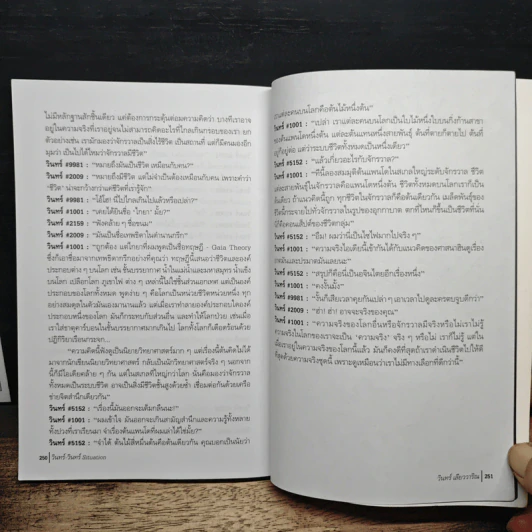 ไม่มีหลักฐานสักชิ้นเดียว แต่ต้องการกระตุ้นต่อมความคิดว่า บางทีเราอาจ
อยู่ในความจริงที่เราอยู่จนไม่สามารถคิดอะไรที่ไกลเกินกรอบของเรา ยก
ตัวอย่างเช่น เรามักมองว่าจักรวาลเป็นสิ่งไร้ชีวิต เป็นสถานที่ แต่ก็มีคนมองอีก
มุมว่า เป็นไปได้ไหมว่าจักรวาลมีชีวิต"
วินทร์ #9981 : "หมายถึงมันเป็นชีวิต เหมือนกับคน?"
วินทร์ #2009 : "หมายถึงมีชีวิต แต่ไม่จำเป็นต้องเหมือนกับคน เพราะคำว่า
'ชีวิต' น่าจะกว้างกว่าแค่ชีวิตที่เรารู้จัก"
วินทร์ #9981 : "โอ้โฮ! นี่ไปไกลเกินไปแล้วหรือเปล่า?"
วินทร์ #1001 : "เคยได้ยินชื่อ 'ไกยา' มั้ย?"
วินทร์ #2159 : "ฟังคล้าย ๆ ชื่อขนม"
วินทร์ #2009 : "มันเป็นชื่อเทพธิดาในตำนานกรีก"
วินทร์ #1001 : "ถูกต้อง แต่ไกยาที่ผมพูดเป็นชื่อทฤษฎี - Gaia Theory
ซึ่งก็เอาชื่อมาจากเทพธิดากรีกอย่างที่คุณว่า ทฤษฎีนี้เสนอว่าชีวิตและองค์
ประกอบต่าง ๆ บนโลก เช่น ชั้นบรรยากาศ น้ำในแม่น้ำและมหาสมุทร น้ำแข็ง
บนโลก เปลือกโลก ภูเขาไฟ ต่าง ๆ เหล่านี้ไม่ใช่ชิ้นส่วนเอกเทศ แต่เป็นองค์
ประกอบของโลกทั้งหมด พูดง่าย ๆ คือโลกเป็นหน่วยชีวิตหน่วยหนึ่ง ทุก
อย่างสมดุลในตัวมันเองมานานแล้ว แต่เมื่อเราทำลายองค์ประกอบใดองค์
ประกอบหนึ่งของโลก มันก็กระทบกับส่วนอื่น และทำให้โลกป่วย เช่นเมื่อ
เราใส่ธาตุคาร์บอนในชั้นบรรยากาศมากเกินไป โลกทั้งโลกก็เดือดร้อนด้วย
ปฏิกิริยาเรือนกระจก...
"ความคิดนี้ฟังดูเป็นนิยายวิทยาศาสตร์มาก ๆ แต่เรื่องนี้ต้นคิดไม่ได้
มาจากนักเขียนนิยายวิทยาศาสตร์ กลับเป็นนักวิทยาศาสตร์จริง ๆ นอกจาก
นี้ก็มีไอเดียคล้าย ๆ กัน แต่ในสเกลที่ใหญ่กว่าโลก นั่นคือมองว่าจักรวาล
ทั้งหมดเป็นระบบชีวิต อาจเป็นสิ่งมีชีวิตชั้นสูงด้วยซ้ำ เชื่อมต่อกันด้วยเครือ
ข่ายจิตสำนึกเดียวกัน"
วินทร์ #5152 : "เรื่องนี้มันออกจะเต็มกลืนนะ?"
วินทร์ #1001 : "ผมเข้าใจ มันออกจะเกินสามัญสำนึกและความรู้ทั้งหลาย
ทั้งปวงที่เราเรียนมา จำเรื่องต้นแพนโดที่ผมเล่าได้ใช่มั้ย?"
วินทร์ #5152 : "จำได้ ต้นไม้สี่หมื่นต้นคือต้นเดียวกัน คุณบอกเป็นนัยว่า
250 วินทร์-วินทร์ Situation
เราแต่ละคนบนโลกคือต้นไม้หนึ่งต้น"
วินทร์ #1001 : "เปล่า เราแต่ละคนบนโลกเป็นใบไม้หนึ่งใบบนกิ่งก้านสาขา
ของต้นแพนโดหนึ่งต้น แต่ละต้นแทนหนึ่งสายพันธุ์ ต้นที่ตายก็ตายไป ต้นที่
อยู่ก็อยู่ต่อ แต่ว่าระบบชีวิตทั้งหมดเป็นหนึ่งเดียว"
วินทร์ #5152 : "แล้วเกี่ยวอะไรกับจักรวาล?"
วินทร์ #1001 : "ทีนี้ลองสมมุติต้นแพนโดในสเกลใหญ่ระดับจักรวาล ชีวิต
แต่ละสายพันธุ์ในจักรวาลคือแพนโดหนึ่งต้น ชีวิตทั้งหมดบนโลกเราก็เป็น
ต้นเดียว ถ้าแนวคิดนี้ถูก ทุกชีวิตในจักรวาลก็คือต้นเดียวกัน เมล็ดพันธุ์ของ
ชีวิตนี้กระจายไปทั่วจักรวาลในรูปของอุกกาบาต ตกที่ไหนก็ขึ้นเป็นชีวิตที่นั่น
นี่ก็คือคอนเส็ปต์ของชีวิตกลุ่ม"
วินทร์ #5152 : "บึ้ม! ผมว่านี่เป็นไซไฟมากไปจริง ๆ"
วินทร์ #1001 : "ความจริงไอเดียนี้เข้ากันได้กับแนวคิดของศาสนาฮินดูเรื่อง
อาตมันและปรมาตมันเลยนะ"
วินทร์ #5152 : "สรุปก็คือนี่เป็นอจินไตยอีกเรื่องหนึ่ง"
วินทร์ #1001 : "คงงั้นมั้ง"
วินทร์ #9981 : "งั้นก็เสียเวลาคุยกันเปล่า ๆ เอาเวลาไปดูละครตบจูบดีกว่า"
วินทร์ #2009 : "ฮ่า! ฮ่า! อาจจะจริงของคุณ"
วินทร์ #1001 : "ความจริงของโลกอื่นหรือจักรวาลมีจริงหรือไม่เราไม่รู้
ความจริงในโลกของเราจะเป็น 'ความจริง' จริง ๆ หรือไม่ เราก็ไม่รู้ แต่ใน
เมื่อเราอยู่ในความจริงของโลกนี้แล้ว มันก็คงดีที่สุดถ้าเราดำเนินชีวิตไปให้ดี
ที่สุดด้วยความจริงชุดนี้ เพราะดูเหมือนว่าเราไม่มีทางเลือกที่ดีกว่านี้"
วินทร์ เลียววาริณ 251